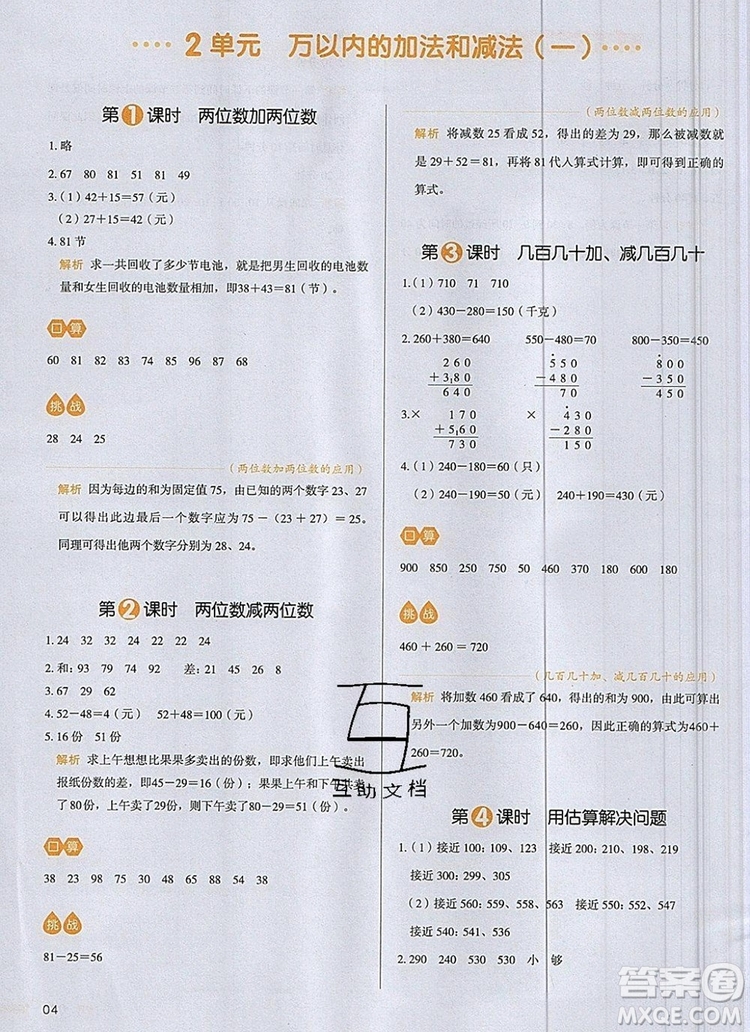 2单元 万以内的加法和减法(一)
第1课时 两位数加两位数
1. 略
2. 67 80 81 51 81 49
3.(1)42+15=57(元)
(2)27+15=42(元)
4. 81节
解析 求一共回收了多少节电池,就是把男生回收的电池数
量和女生回收的电池数量相加,即38+43=81(节)。
口算
60 81 82 83 74 58 94 85 96 68
挑战
28 24 25
(两位数加两位数的应用)
解析 因为每边的和为固定值75,由已知的两个数字23、27
可以得出此边最后一个数字应为75-(23+27)=25。
同理可得出他两个数字分别为28、24。
第2课时 两位数减两位数
1. 24 32 24 22 22 24
2. 和:93 79 74 92 差:21 27 32 24
3. 67 29 62
4. 52-48=4(元) 52+48=100(元)
5. 16份 51份
解析 求上午想想比果果多卖出的份数,即求他们上午卖出
报纸份数的差,即45-29=16(份);果果上午和下午共卖
了80份,上午卖了29份,则下午卖了80-29=51(份)。
口算
38 23 98 75 30 38 15 90 48 50
挑战
81-25=56
04
(两位数减两位数的应用)
解析 将减数25看成52,得出的差为29,那么被减数就
是29+52=81,再将81代入算式计算,即可得到正确的
算式。
第3课时 几百几十加、减几百几十
1.(1)710 71 710
(2)430-280=150(千克)
2. 260+380=640 550-480=70 800-350=450
260 550 800
+380 -480 -350
640 70 450
3. × 170 × 430
+560 -280
730 150
4.(1)240-180=60(只)
(2)240-190=50(元) 240+190=430(元)
口算
900 850 360 900 70 180 330 180
挑战
460+260=720
(几百几十加、减几百几十的应用)
解析 将加数460看成了640,得出的和为900,由此可算出
另外一个加数为900-640=260,因此正确的算式为460+
260=720。
第4课时 用估算解决问题
1.(1)接近100:109、123 接近200:210、198、219
接近300:299、305
(2)接近540:543、537 接近550:547、552
接近560:559、558、563 接近570:567、573
2. 290 240 530 530 小 够
互助文档
答案圈
MXQE.COM